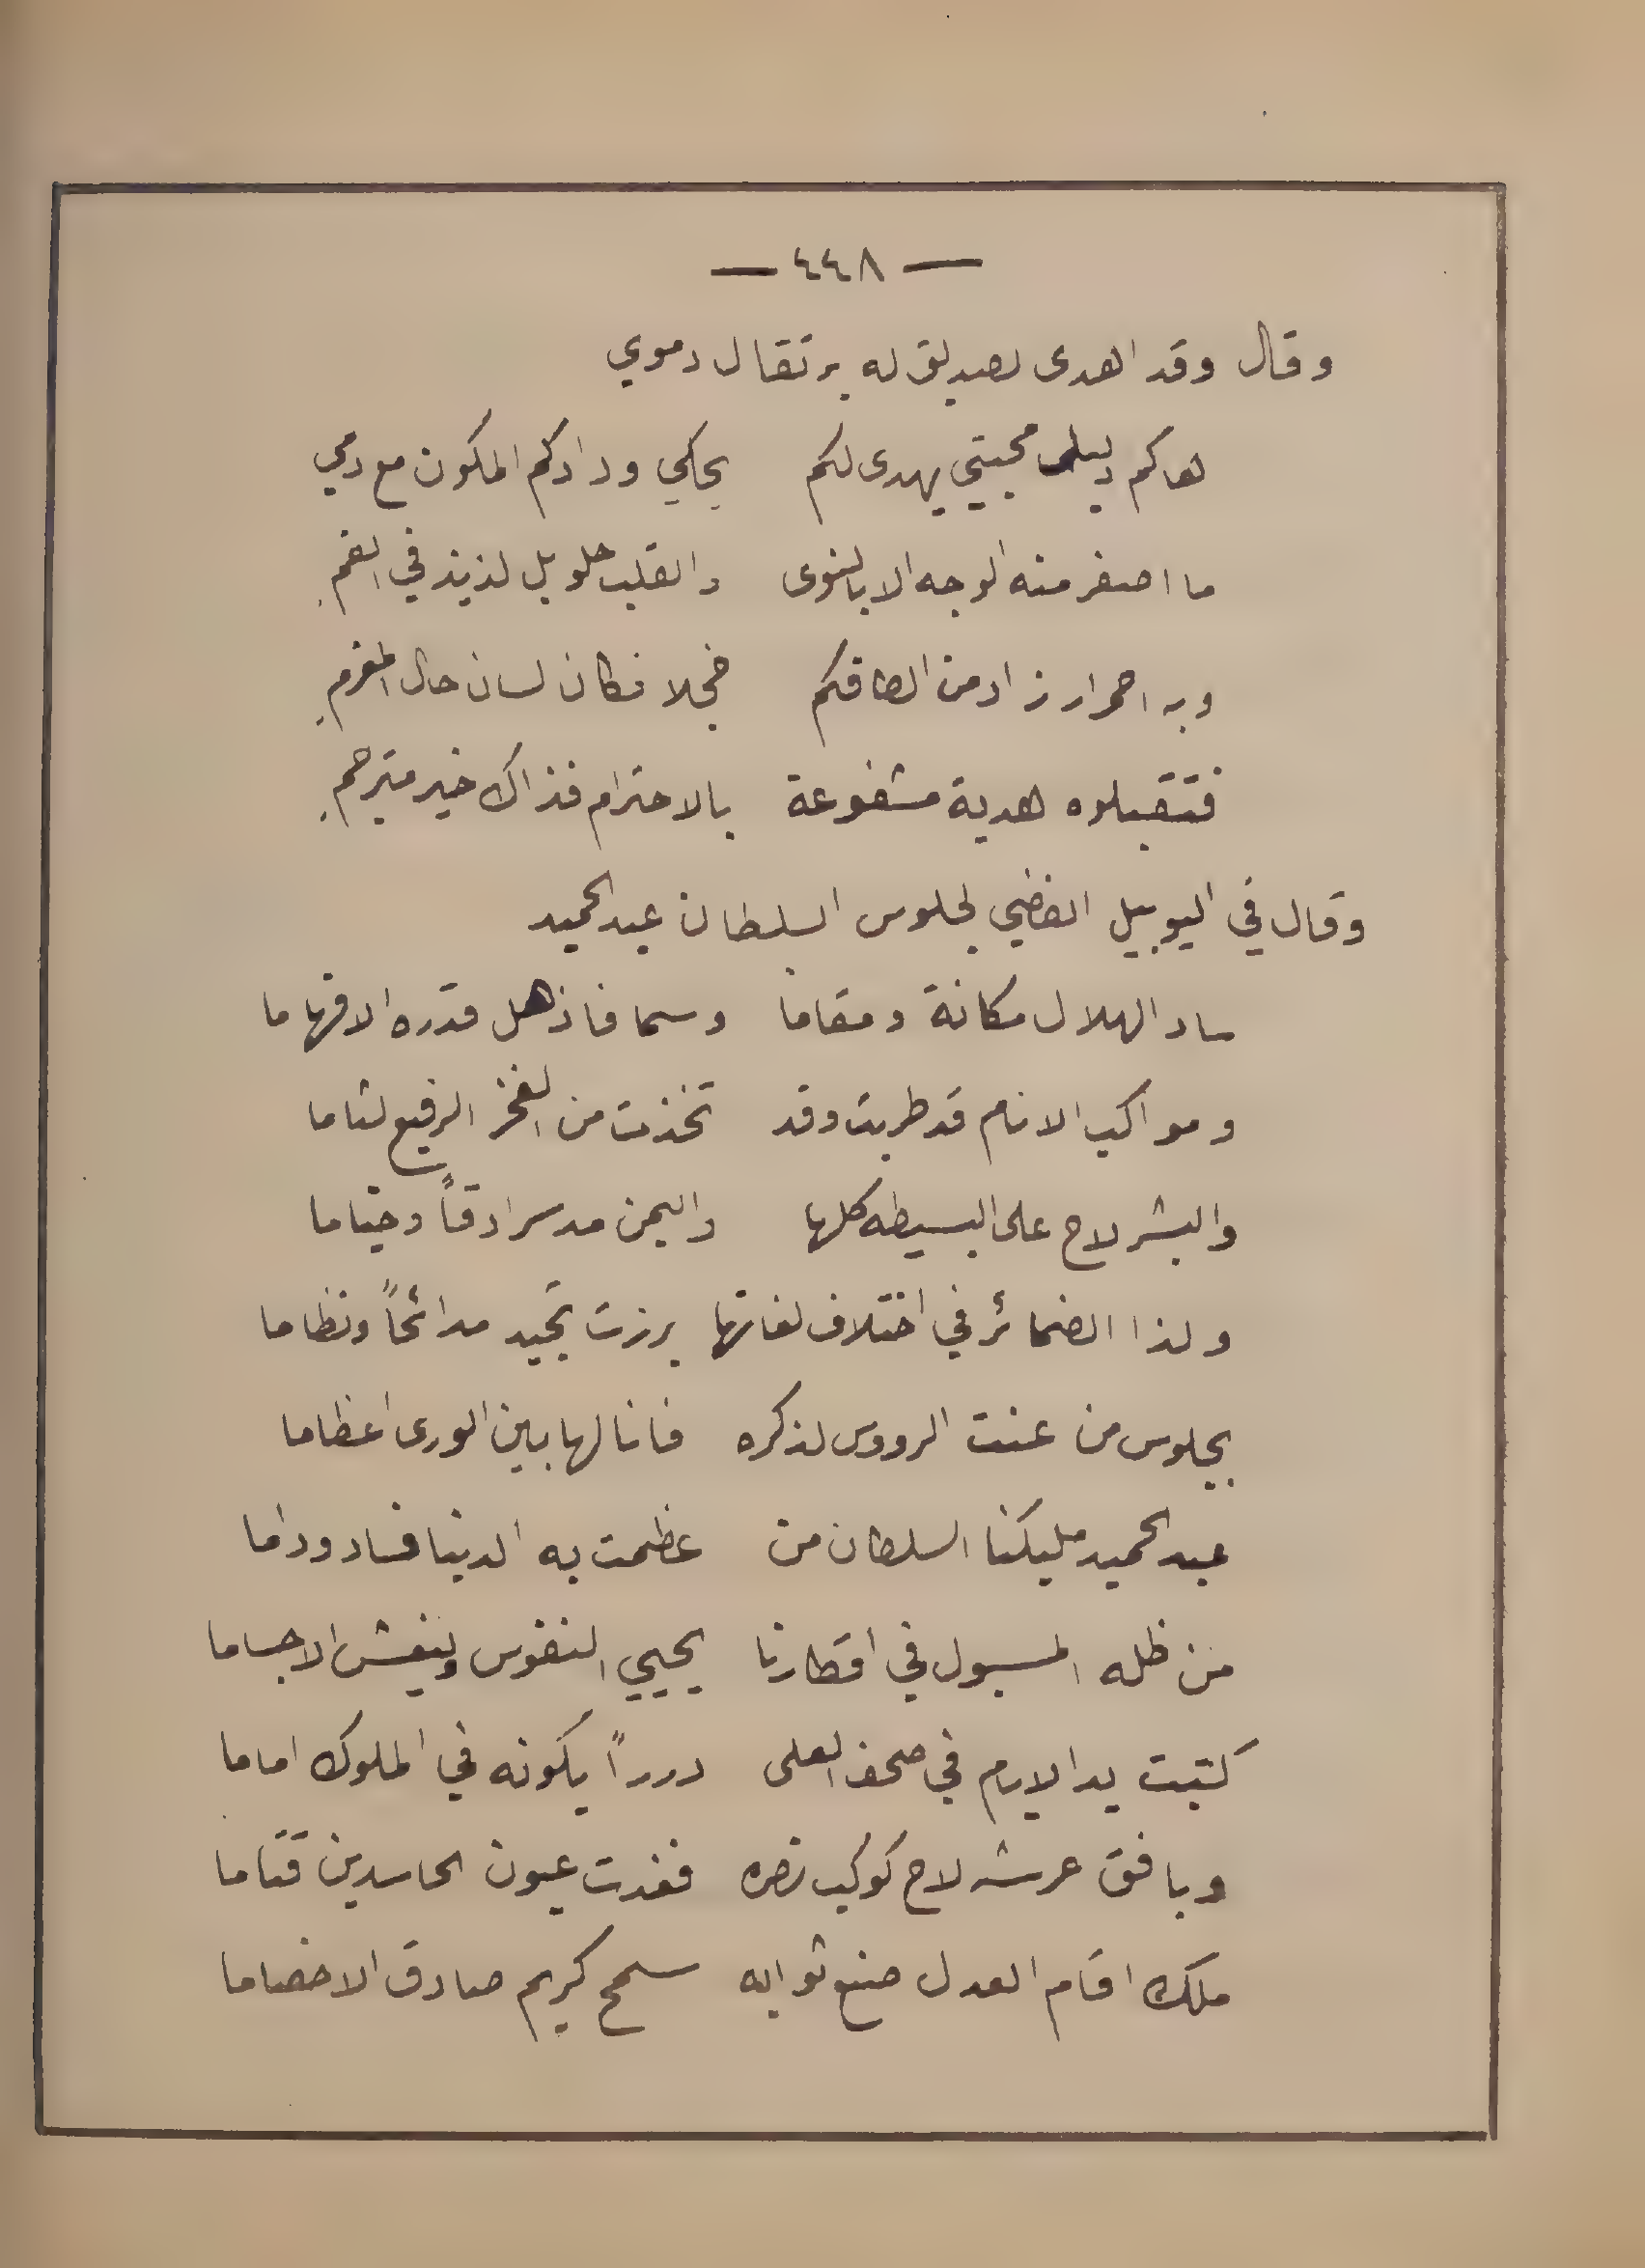 — ٤٤٨ —
وقال وقد اهدى لصديق له برتقال دموي
هاكم دليل محبتي يهدى لكم يحاكي ودادكم المكون مع دمي
ما اصفر منه الوجه الا بالنوى والقلب حلو بل لذيذ في الفمِ
وبه احمرار زاد من الطافكم خجلا فكان لسان حال المغرمِ
فتقبلوه هدية مشفوعة بالاحترام فذاك خير مترجمِ
وقال في اليوبيل الفضي لجلوس السلطان عبد الحميد
ساد الهلال مكانة ومقاما وسما فاذهل قدره الافهاما
ومواكب الانام قد طربت وقد تخذت من الفخر الرفيع لثاما
والبشر لاح على البسيطه كلها واليمن مد سرادقاً وخياما
ولذا الضمائر في اختلاف لغاتها برزت تجيد مدائحاً ونظاما
بجلوس من عنت الرووس لذكره فانالها بين الورى اعظاما
عبد الحميد مليكنا السلطان من عظمت به الدنيا فساد وداما
من ظله المسبول في اقطارنا يحيي النفوس وينعش الاجساما
كتبت يد الايام في صحف العلى درراً يكونه في الملوك اماما
وبافق عرشه لاح كوكب نصره فغدت عيون الحاسدين قتاما
ملك اقام العدل صنع ثوابه سمح كريم صادق الاخصاما